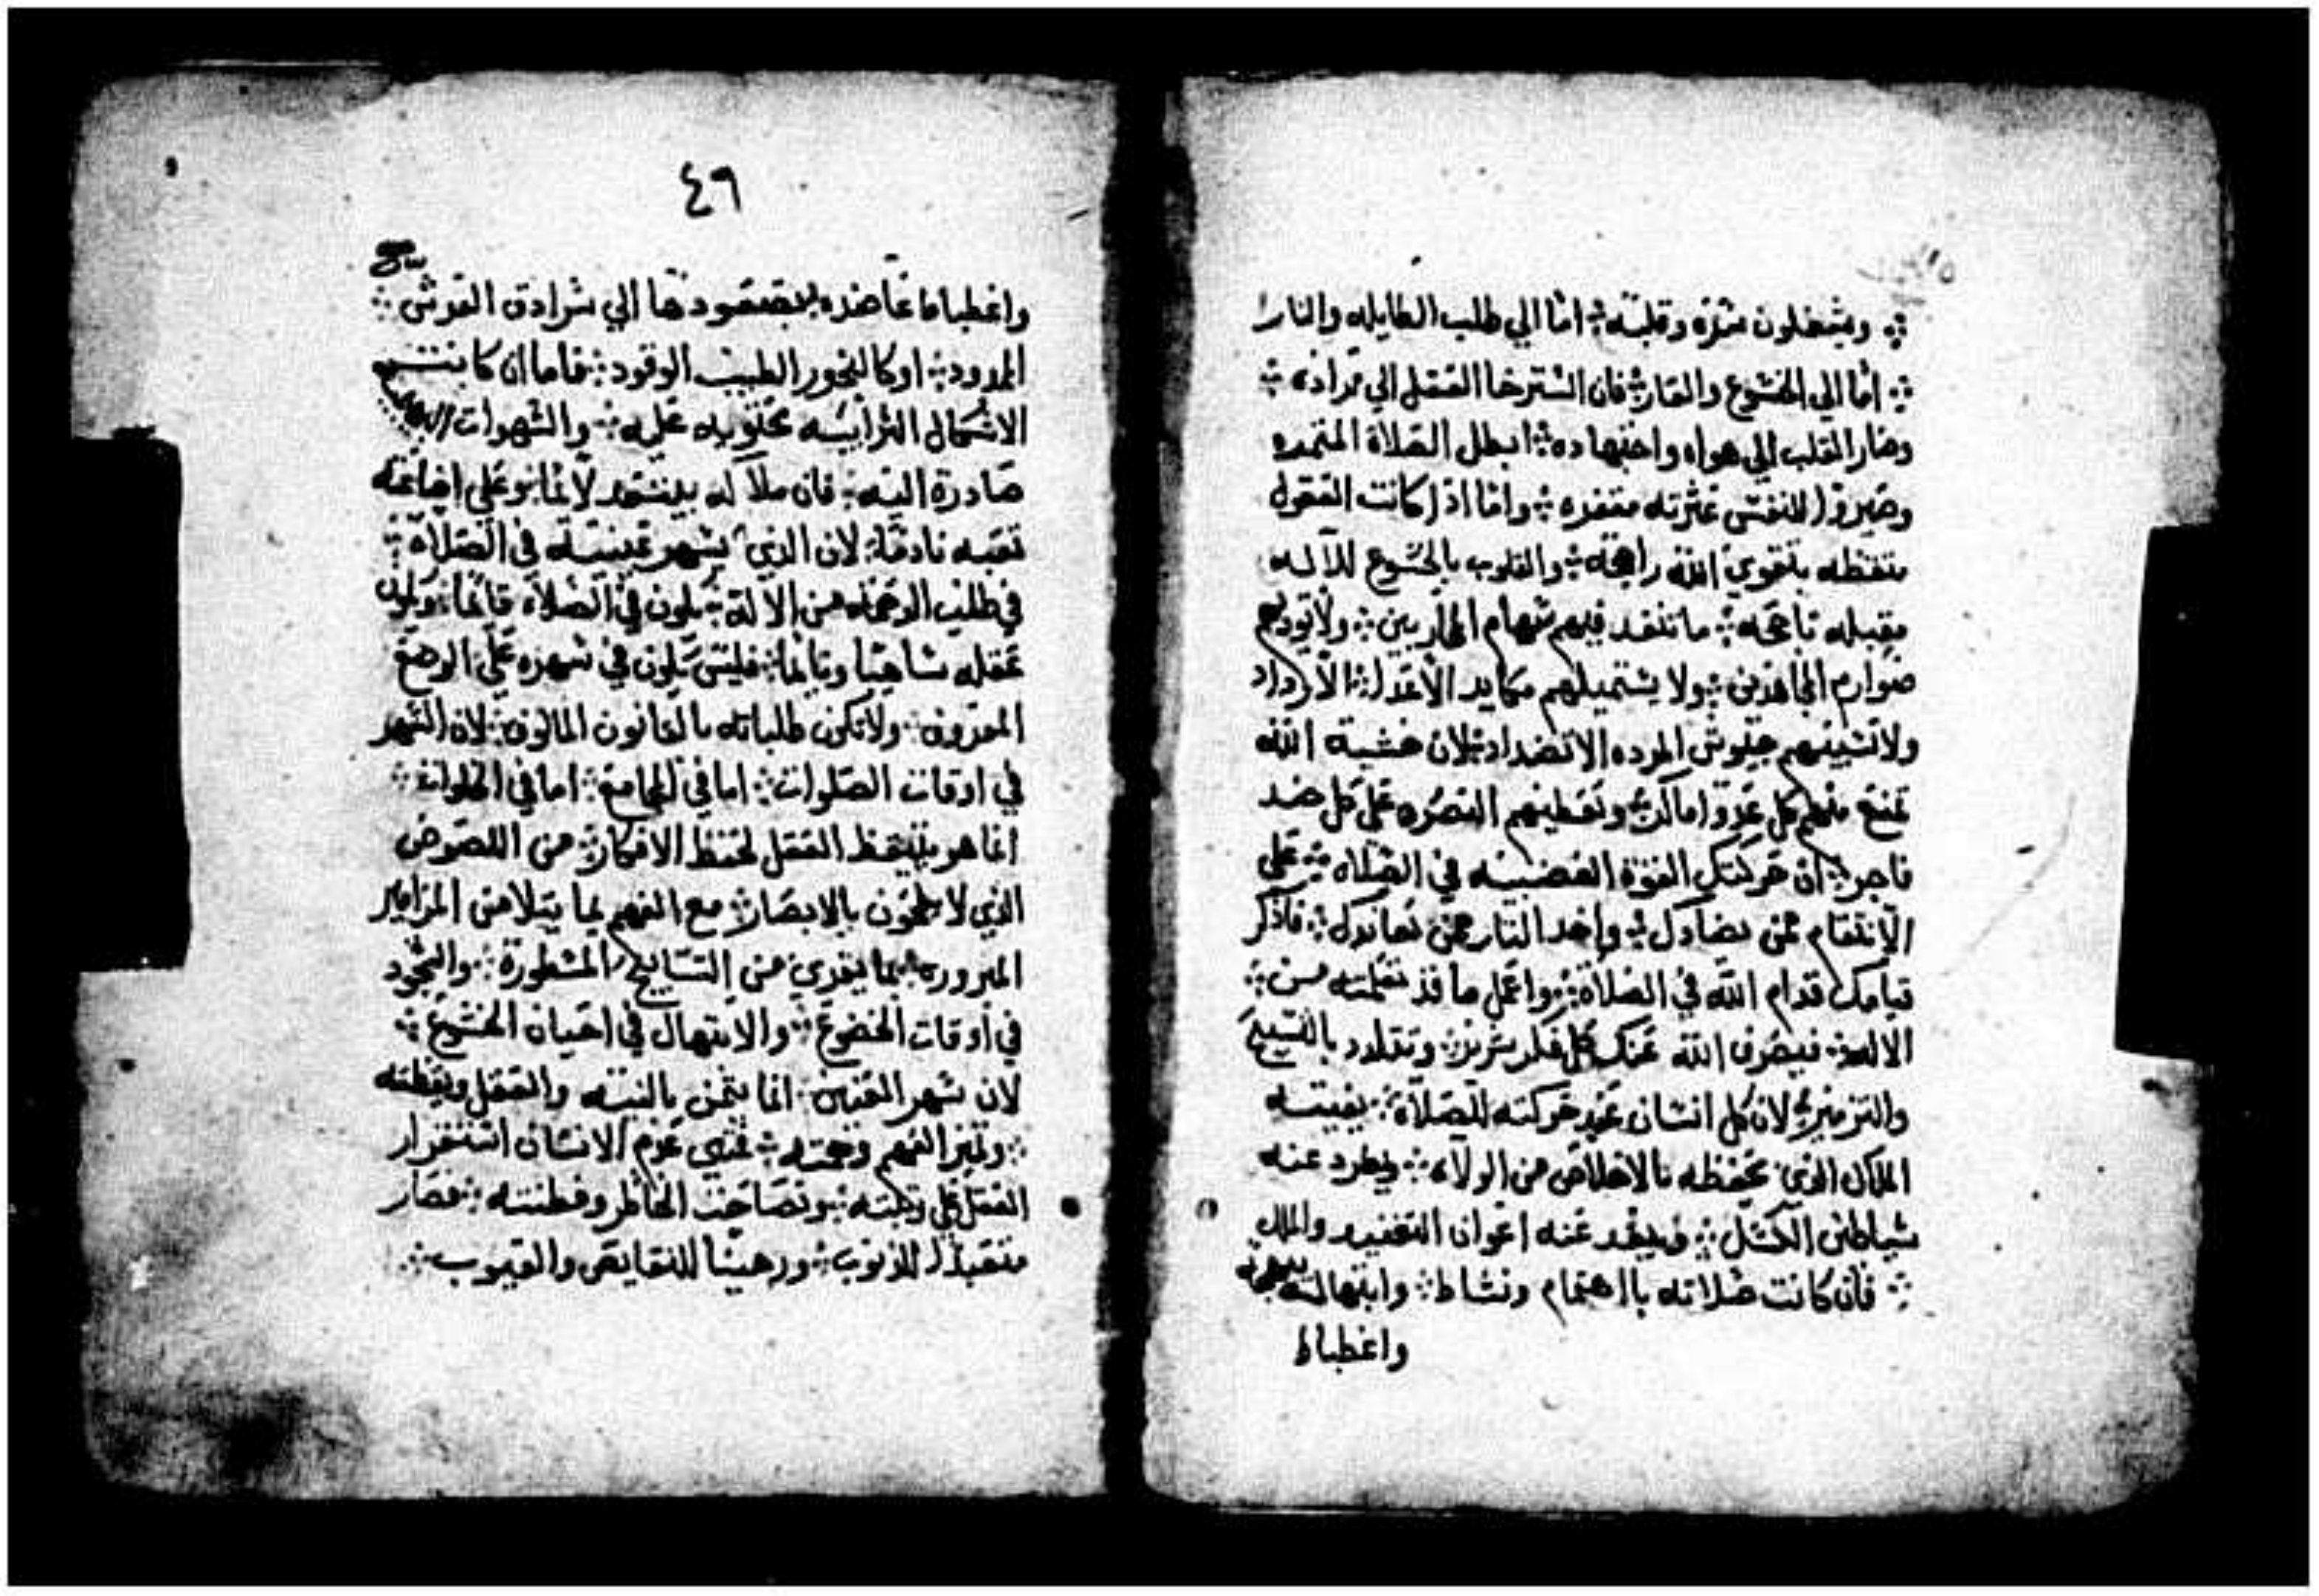 ويشغلون سره وقلبه ⁘ اما الي طلب الطايله والثار
⁘ اما الي الخشوع والقار ⁘ فان استرخا العقل الي مراده ⁘
وصار القلب الي هواه واجتهاده ⁘ ابطل الصلاة
وصيروا للنفس عثرته ⁘ واما اذا كانت العقول
متقظه بتقوي الله راجحه ⁘ والقلوب بالخشوع للآله
مقبله ناجحه ⁘ ما تنفد فيهم سهام المحاربين ⁘ ولا
صوارم المجاهدين ⁘ ولا يستميلهم مكايد الاعدا ⁘
ولا جيوش المرده الاضداد ⁘ لان خشية الله
تمنع منهم كل عدو اماكر ⁘ وتعطيهم النصره علي كل ضد
فاجر ⁘ ان حركتك القوة الغضبيه في الصلاه ⁘ علي
الانتقام ممن يضادك ⁘ واخد التار ممن يعاندك ⁘ فاذكر
قيامك قدام الله في الصلاة ⁘ واعمل ما قد تعلمته من ⁘
الاله ⁘ فيصرف الله عنك كل فكر شرير ⁘ وتتلدد بالتسبيح
والتزمير ⁘ لان كل انسان عند حركته للصلاة ⁘ يعينه
الملاك الذي يحفظه بالاخلاص من الولاء ⁘ ويطرد عنه
شياطين الكسل ⁘ ويبعد عنه اعوان التفنيد والملل
⁘ فان كانت صلاته بااهتمام ونشاط ⁘ وابتهالته
واغطباط
٤٦
واغطباط الي سرادق القدس ⁘
الممدود ⁘ او كالبخور الطيب الوقود ⁘ فاما ان كانت
الاشكال الترابيه محتويه عليه ⁘ والشهوات
صادرة اليه ⁘ فان ملاكه يبتعد علي اضاعة
تعبه نادمًا ⁘ لان الذي يسهر عينيه في الصلاة ⁘
في طلب الرحمه من الالة ⁘ يكون في الصلاة قايمًا ⁘ ويكون
عقله ساهيًا ونايمًا ⁘ فليس يكون في سهره علي الوضع
المعروف ⁘ ولا تكون طلباته بالقانون المالوف ⁘ لان السهر
في اوقات الصلوات ⁘ اما في المجامع ⁘ اما في الخلوات ⁘
انما هو بتيقظ العقل لحفظ الافكار ⁘ من اللصوص
الذي لا يلحقون بالابصار ⁘ مع الفهم بما يتلا من المزامير
المبروره ⁘ بما يقري من التسابيح المسطورة ⁘ والسجود
في اوقات الخضوع ⁘ والابتهال في احيان الخشوع ⁘
لان سهر العينين ⁘ انما يتمن بالنيه والعقل ويقظته
⁘ وتميز الفهم وحجته ⁘ فمتي عدم الانسان استقرار
العقل علي رتبته ⁘ وتصاحبت الخاطر وفطنته ⁘ فصار
متعبدًا للذنوب ⁘ ورهينًا للنقايص والعيوب ⁘